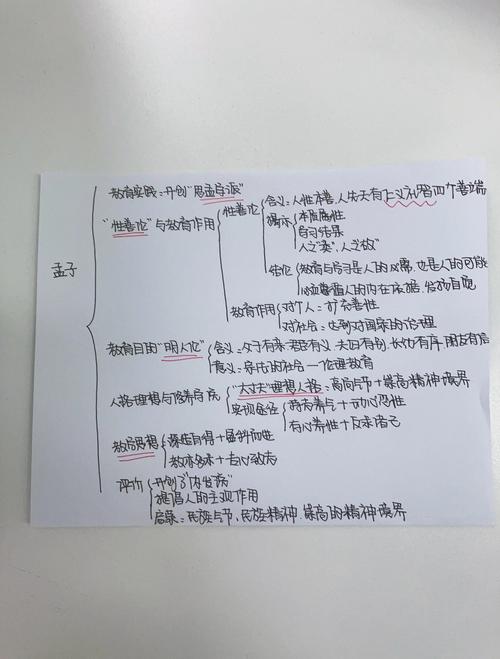 孟子
教育实践：开创"思孟学派"
"性善论"与教育作用
性善论
含义：人性本善，人先天有仁义礼智四个善端
揭示
本质属性
学习结果
人之"类"，人之"故"
结论
教育与学习是人的必需，也是人的可能
必须遵循人的内在依据，发扬自觉
教育作用
对个人：扩充善性
对社会：达到对国家的治理
教育目的"明人伦"
含义：父子有亲 君臣有义 夫妇有别，长幼有序 朋友有信
意义：宗法的社会—伦理教育
人格理想与修养学说
"大丈夫"理想人格：高尚气节+崇高精神境界
实现途径
持志养气+动心忍性
存心养性+反求诸己
教学思想
深造自得+盈科而进
教亦多术+专心致志
评价
开创了"内发说"
提倡人的主观作用
启示：民族气节，民族精神，崇高的精神境界